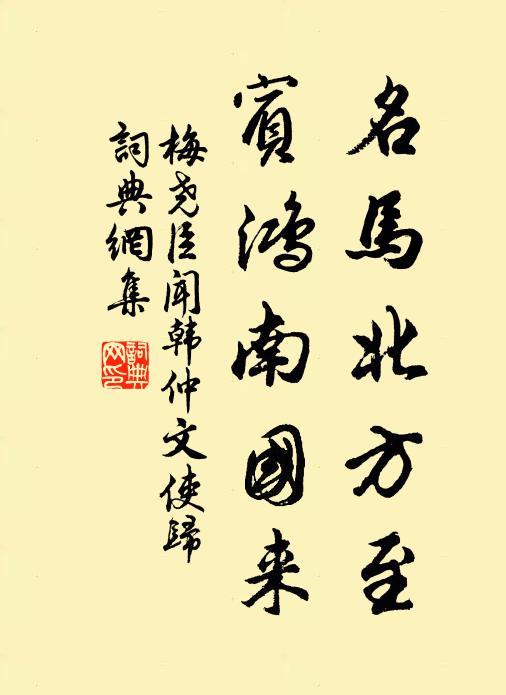 名馬北方至
賓鴻南國来
梅尧臣闻韩仲文使歸
詞典網集
詞典
网印